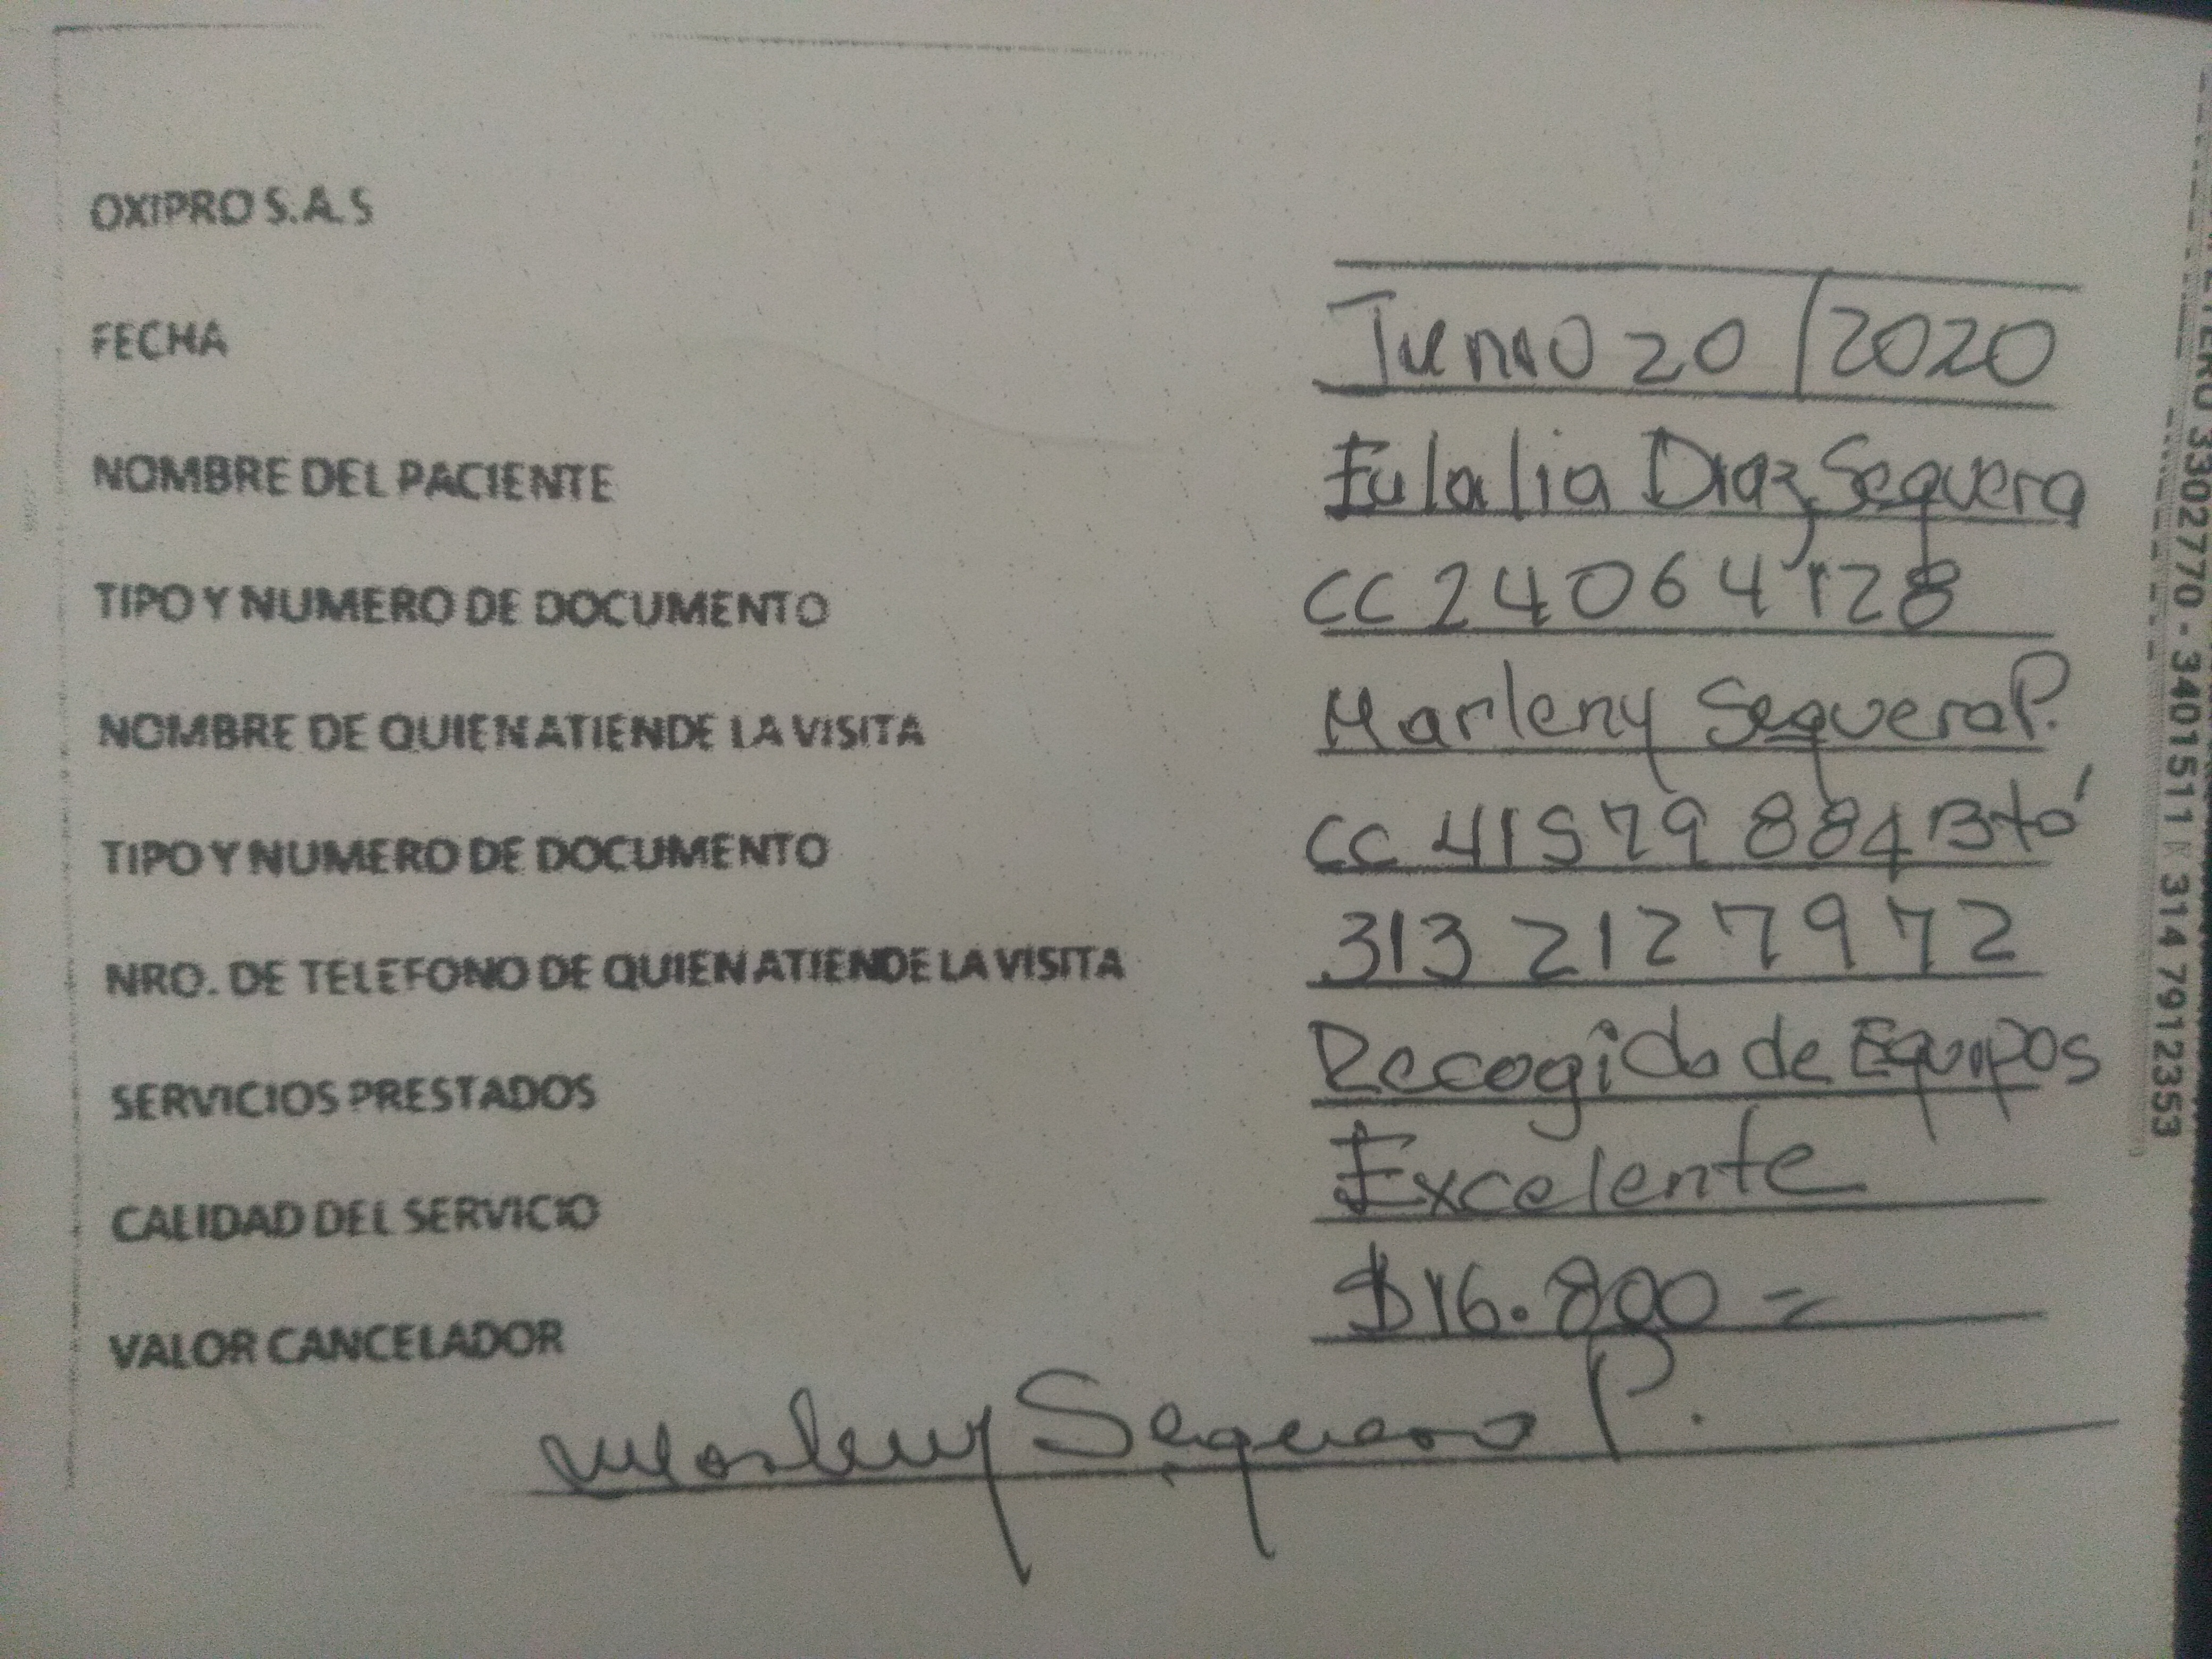 OXIPRO S.A.S
FECHA Junio 20/2020
NOMBRE DEL PACIENTE Eulalia Diaz Sequera
TIPO Y NUMERO DE DOCUMENTO CC 24064128
NOMBRE DE QUIEN ATIENDE LA VISITA Marleny Sequera P.
TIPO Y NUMERO DE DOCUMENTO CC 41579884 Btá
NRO. DE TELEFONO DE QUIEN ATIENDE LA VISITA 313 2127972
SERVICIOS PRESTADOS Recogida de Equipos
CALIDAD DEL SERVICIO Excelente
VALOR CANCELADOR $16.800=
Marleny Sequera P.
3302770 - 3401511 314 7912353